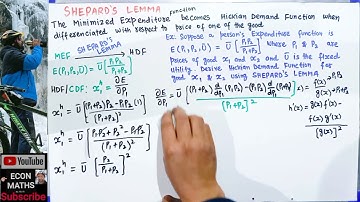 SHEPARD'S LEMMA
The Minimized Expenditure function becomes Hicksian Demand Function when
differentiated with respect to price of one of the good
MEF SHEPARD'S LEMMA HDF
E(P₁,P₂,Ū) = Ū [P₁P₂/P₁+P₂]
HDF/CDF: x₁ʰ = ∂E/∂P₁
x₁ʰ = Ū [(P₁+P₂)P₂ - P₁P₂(1)/(P₁+P₂)²]
x₁ʰ = Ū [P₁P₂ + P₂² - P₁P₂/(P₁+P₂)²]
x₁ʰ = Ū [P₂/P₁+P₂]²
Ex: Suppose a person's Expenditure function is
E(P₁,P₂,Ū) = Ū [P₁P₂/P₁+P₂] where P₁ & P₂ are
prices of good x₁ and x₂ and Ū is the fixed
utility. Derive Hicksian Demand for
good x₁ & x₂ using SHEPARD'S LEMMA
∂E/∂P₁ = Ū [(P₁+P₂) d/dP₁ (P₁P₂) - (P₁P₂) d/dP₁ (P₁+P₂)/[P₁+P₂]²]
f(x) → P₁P₂
g(x) → P₁+P₂
h'(x) = g(x) f'(x) -
f(x) g'(x)
[g(x)]²
YouTube
ECON
MATHS